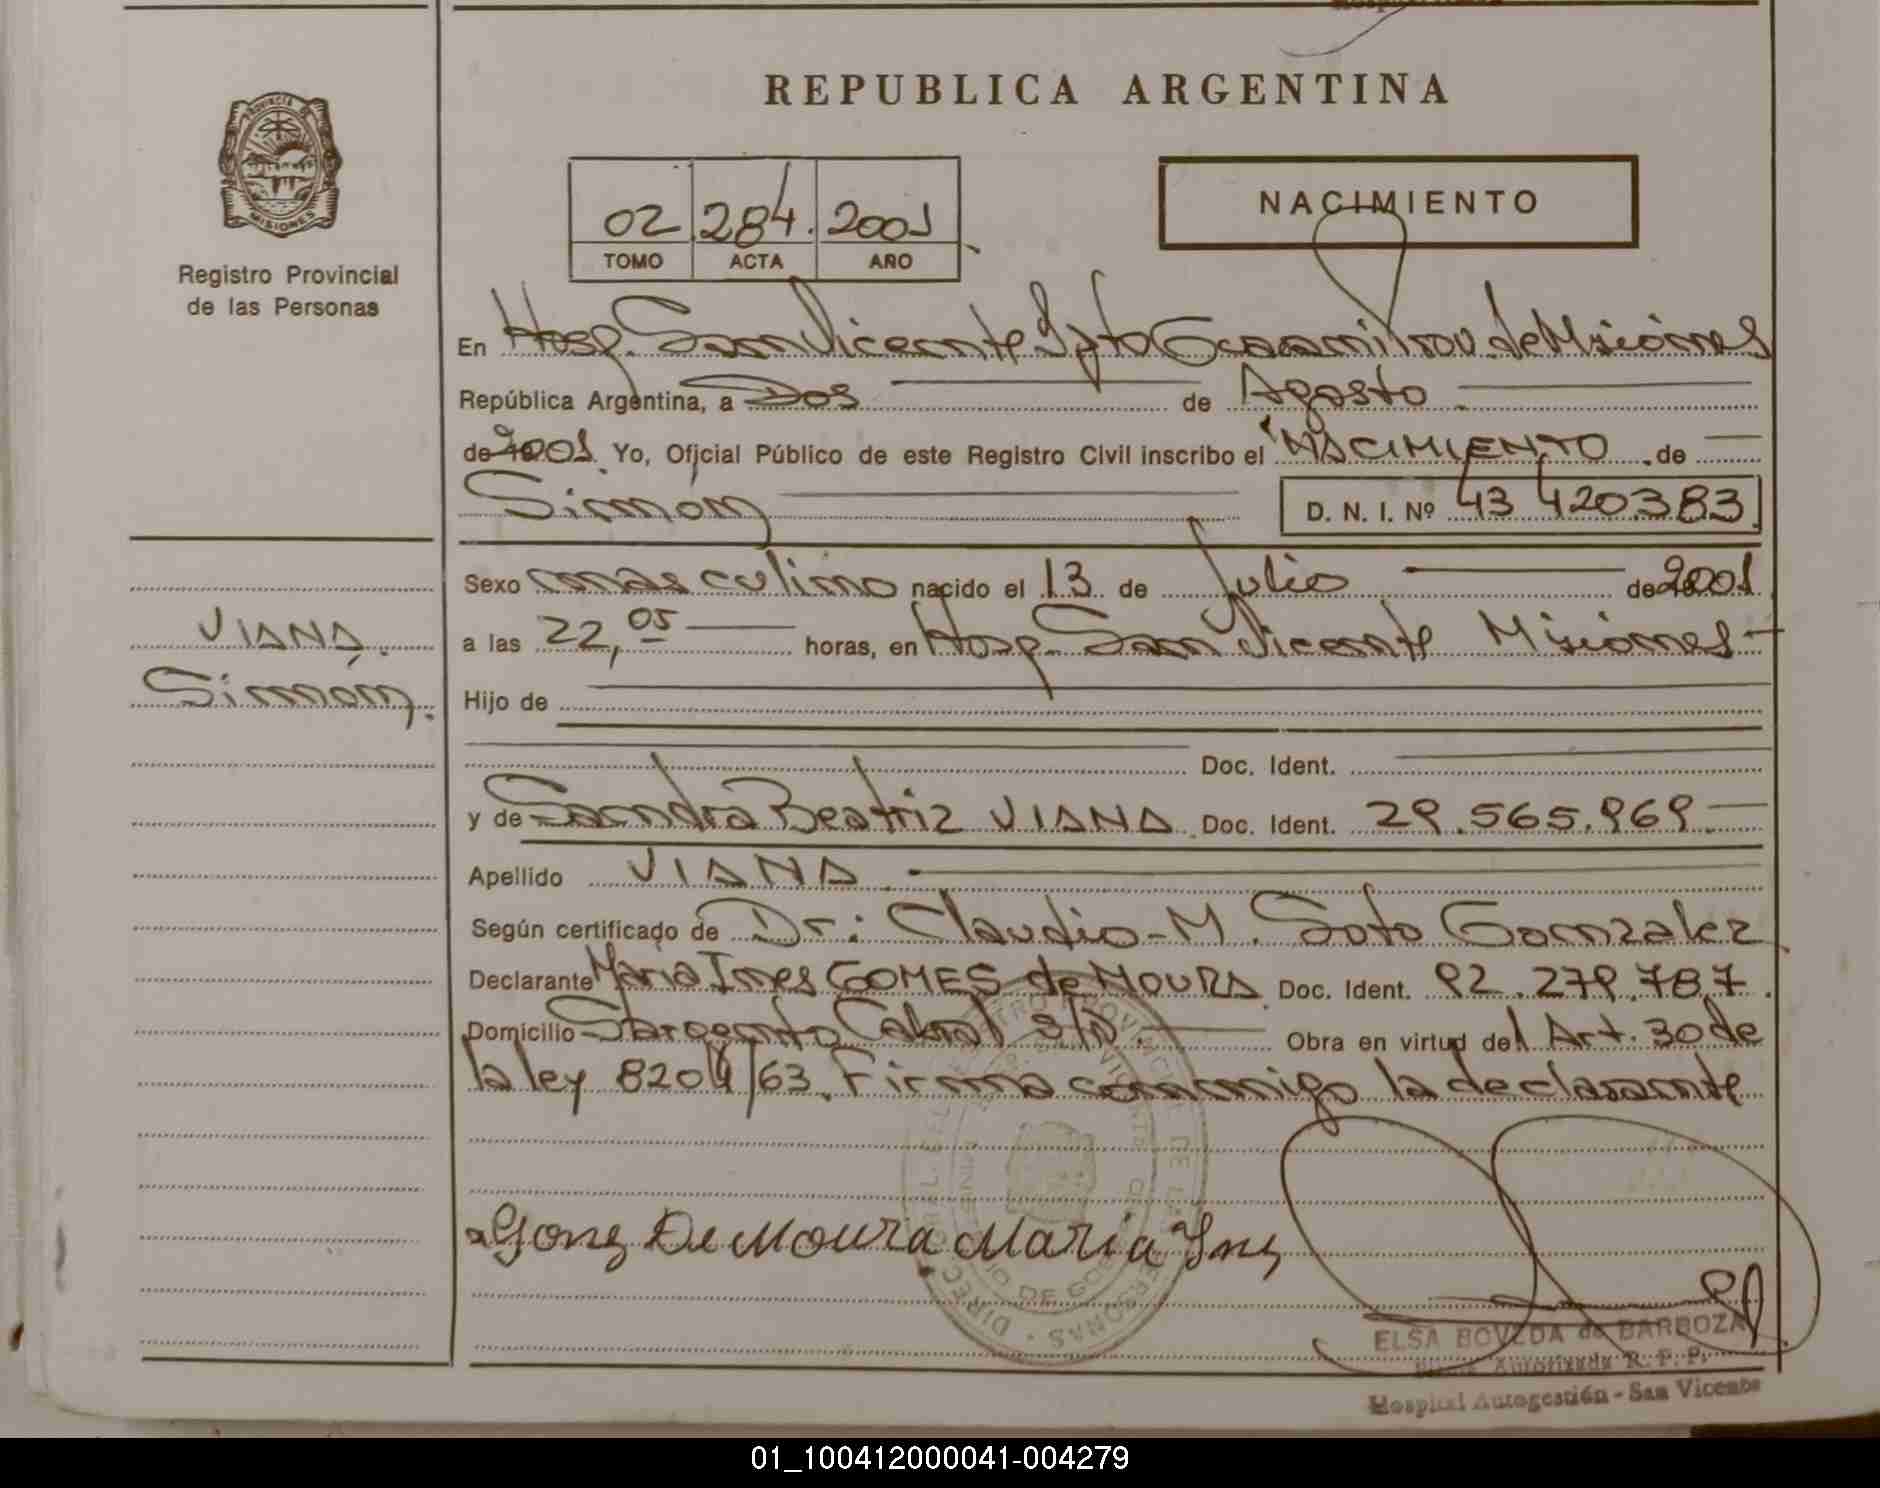 REPUBLICA ARGENTINA
PROVINCIA DE
MISIONES
Registro Provincial
de las Personas
02 284. 2001
TOMO ACTA AÑO
NACIMIENTO
En Hosp. San Vicente Dpto Guaraní Prov. de Misiones
República Argentina, a Dos de Agosto
de 2001. Yo, Oficial Público de este Registro Civil inscribo el NACIMIENTO de
Simón
D. N. I. Nº 43 420383
VIANA.
Simón.
Sexo masculino nacido el 13 de Julio de 2001
a las 22,05 horas, en Hosp. San Vicente Misiones
Hijo de
Doc. Ident.
y de Sandra Beatriz VIANA Doc. Ident. 29.565.969
Apellido VIANA.
Según certificado de Dr: Claudio-M. Soto Gonzalez
Declarante Maria Ines GOMES de MOURA Doc. Ident. 92.279.787.
Domicilio Sargento Cabral s/n. Obra en virtud del Art. 30 de
la ley 8204/63. Firma conmigo la declarante
De Moura Maria
ELSA BOVEDA de BARBOZA
Autorizada R. P. P.
Hospital Autogestión - San Vicente
01_100412000041-004279